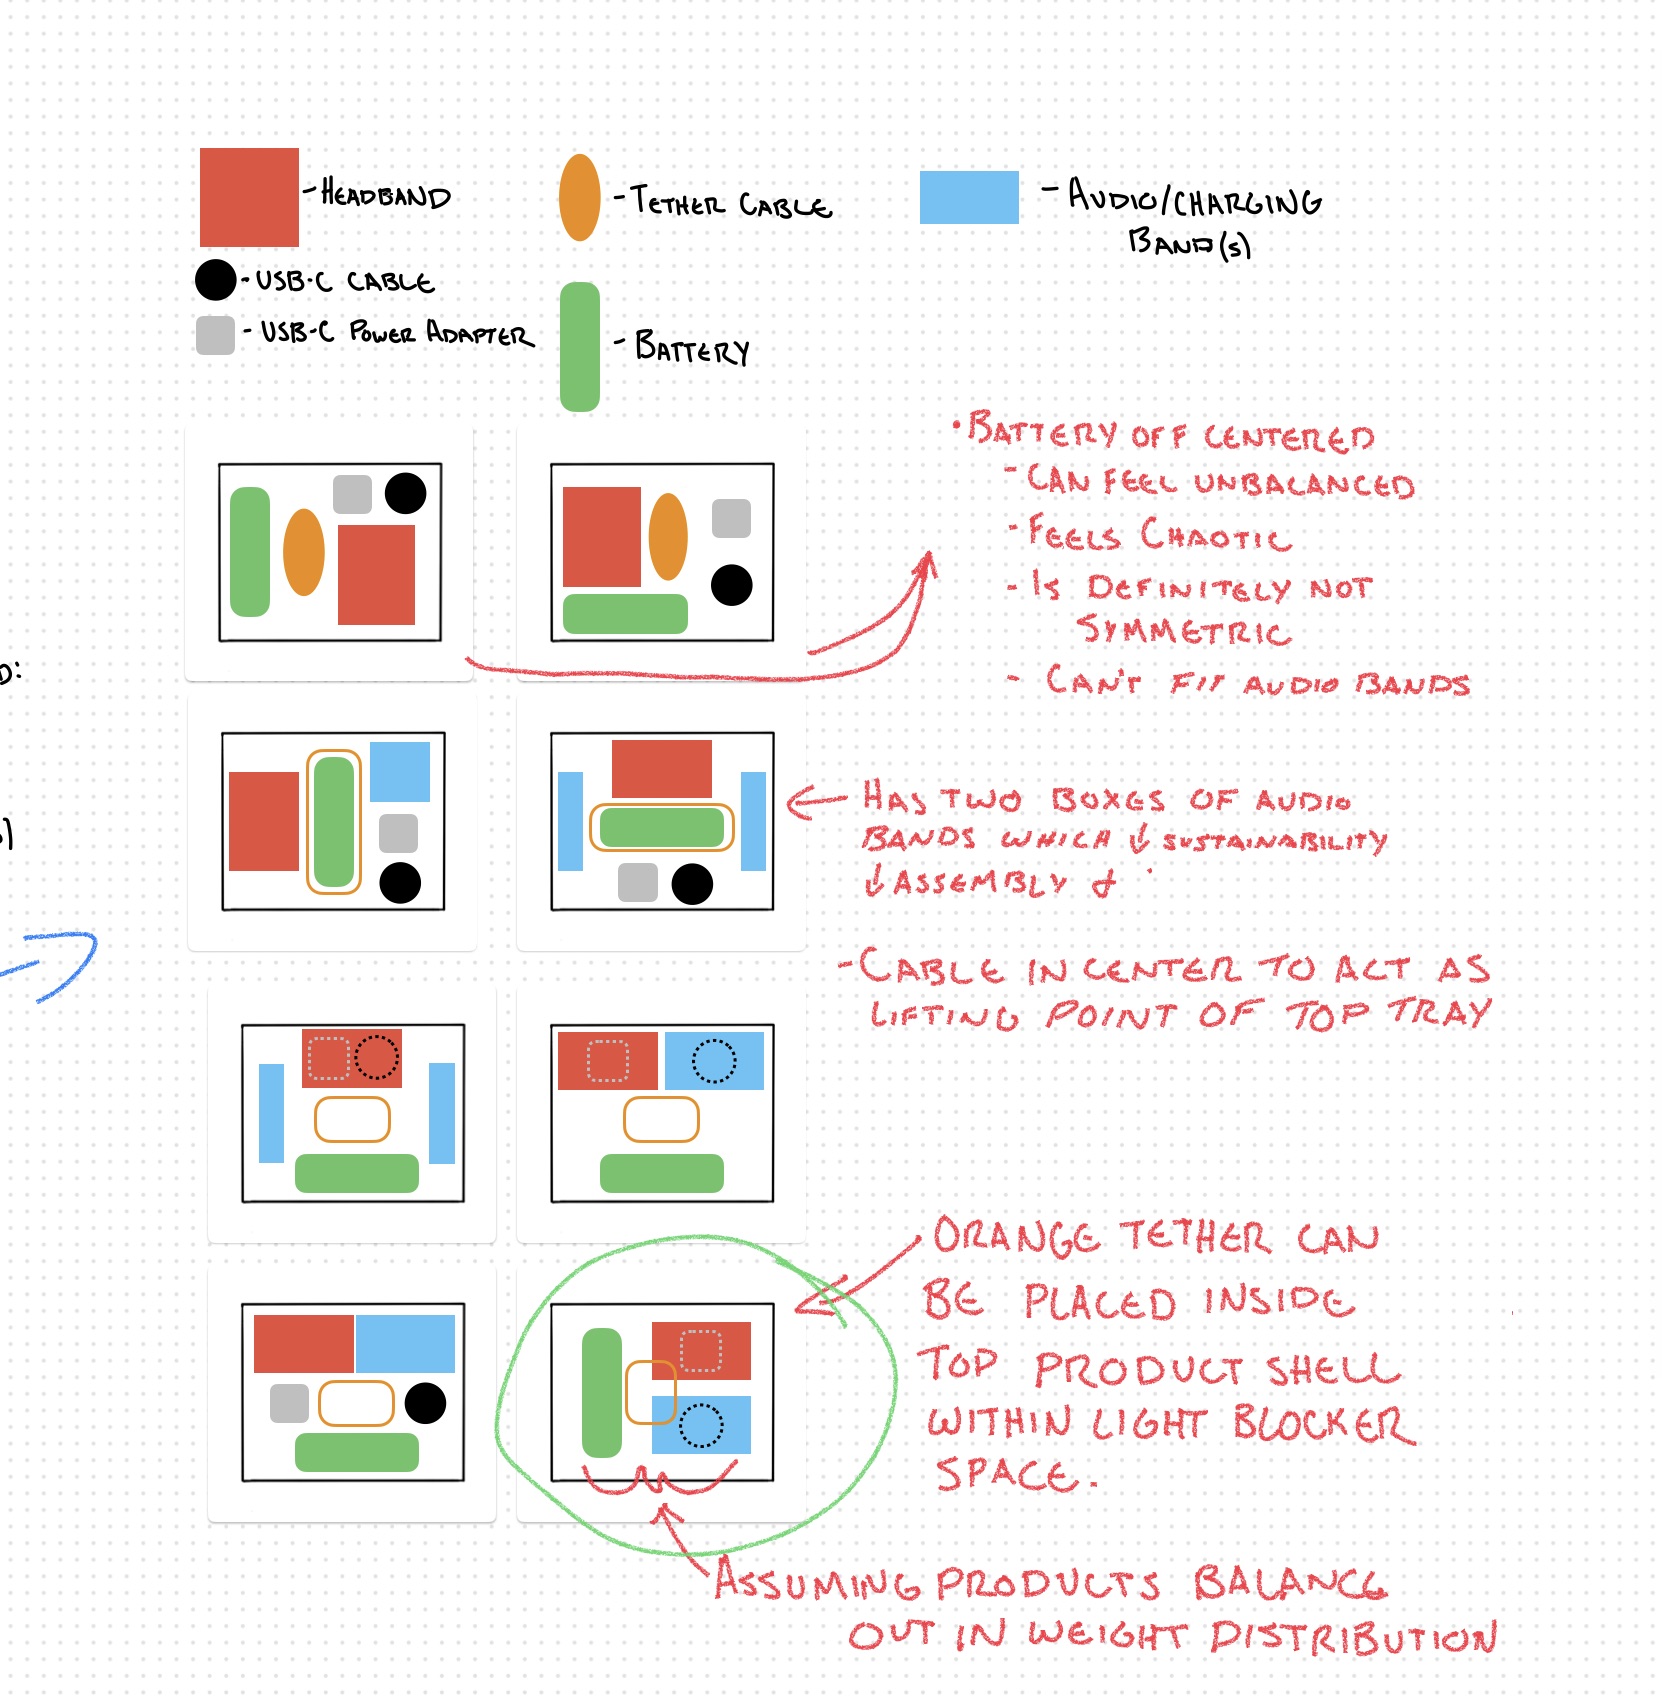 - HEADBAND
- TETHER CABLE
- AUDIO/CHARGING
BAND(S)
- USB-C CABLE
- USB-C POWER ADAPTER
- BATTERY
• BATTERY OFF CENTERED
- CAN FEEL UNBALANCED
- FEELS CHAOTIC
- IS DEFINITELY NOT
SYMMETRIC
- CAN'T FIT AUDIO BANDS
D:
HAS TWO BOXES OF AUDIO
BANDS WHICH ↓ SUSTAINABILITY
↓ ASSEMBLY &
- CABLE IN CENTER TO ACT AS
LIFTING POINT OF TOP TRAY
ORANGE TETHER CAN
BE PLACED INSIDE
TOP PRODUCT SHELL
WITHIN LIGHT BLOCKER
SPACE.
ASSUMING PRODUCTS BALANCE
OUT IN WEIGHT DISTRIBUTION